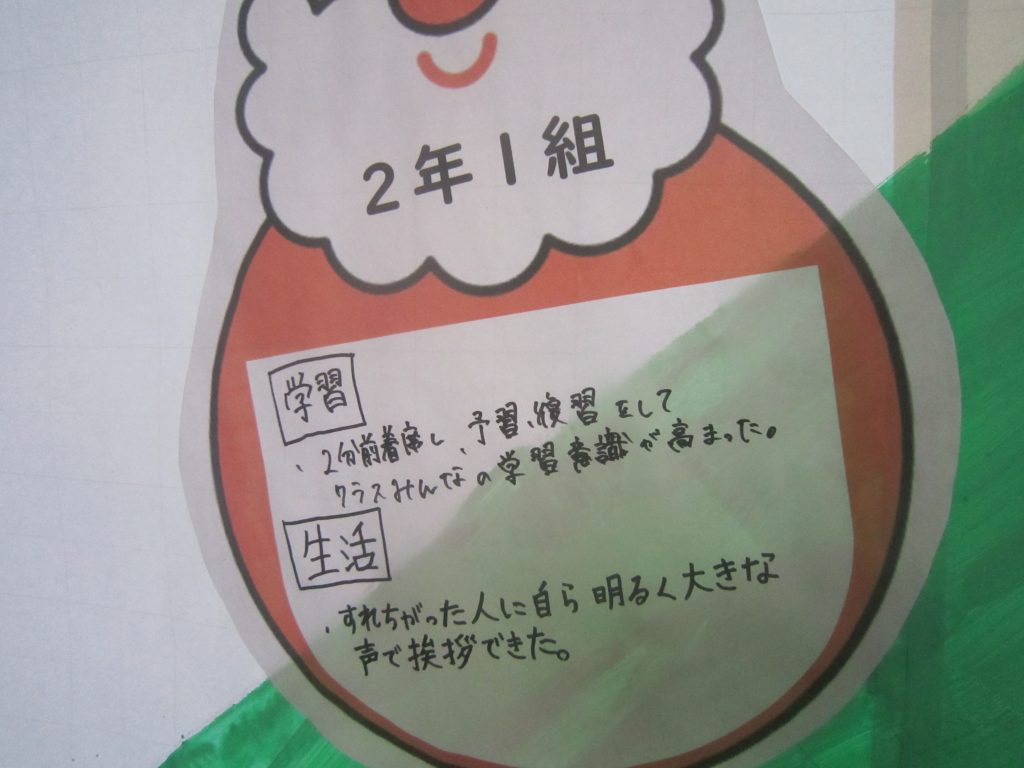 2年1組
学習
、2分前着席し、予習、復習をして
クラスみんなの学習意識が高まった。
生活
、すれちがった人に自ら明るく大きな
声で挨拶できた。